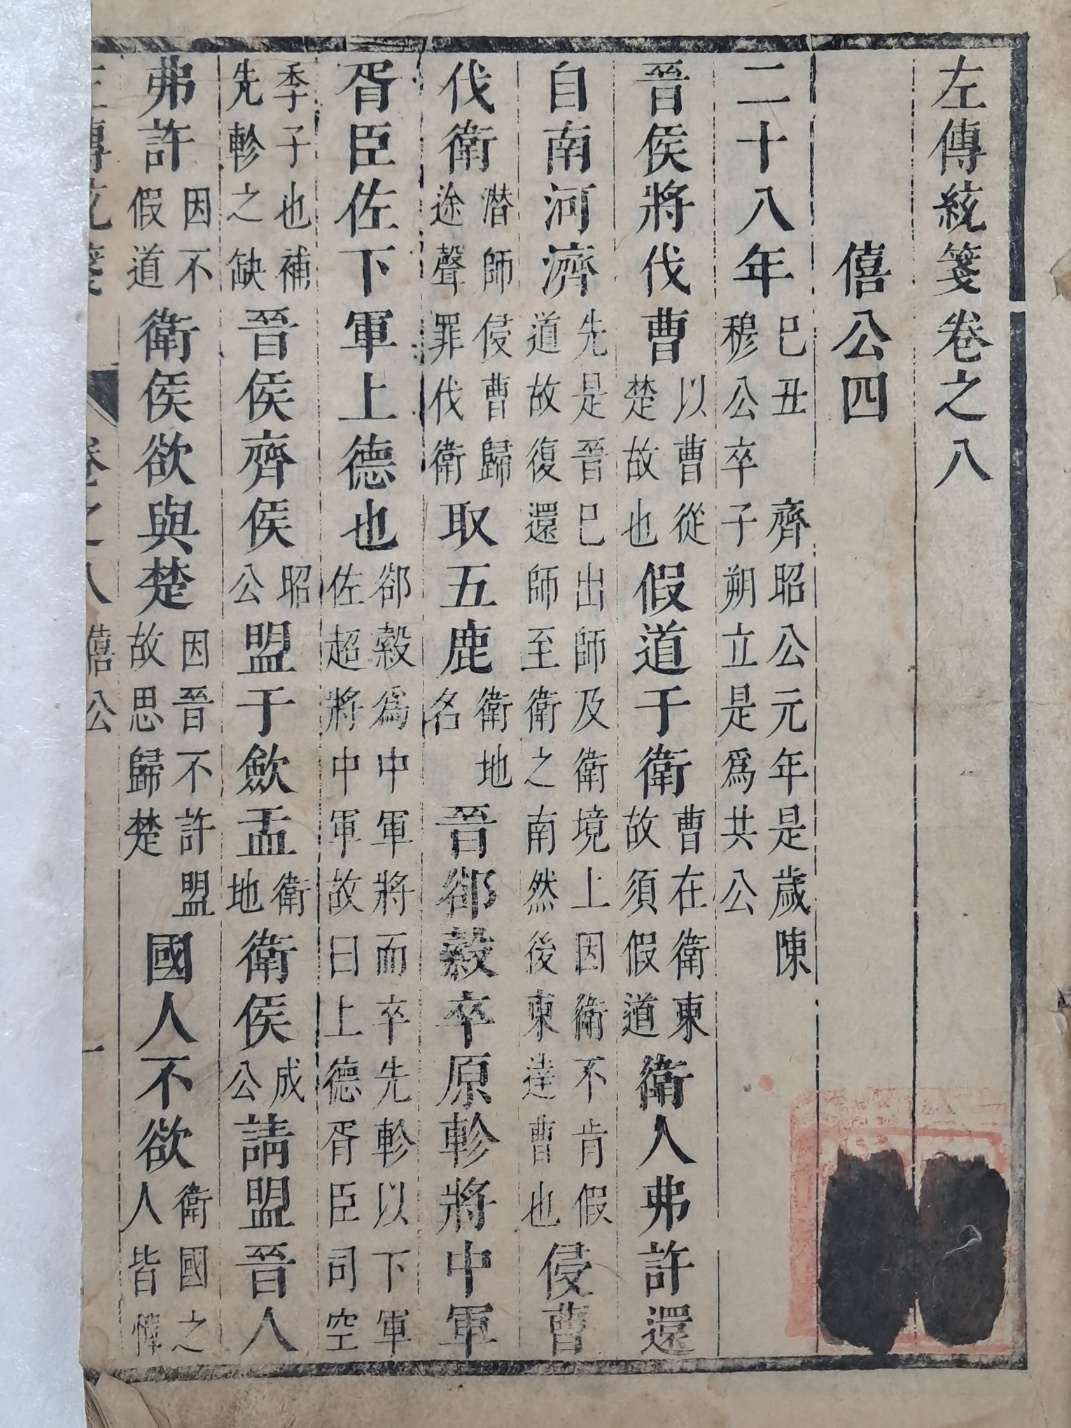 左傳綂箋卷之八
僖公四
二十八年巳丑 齊昭公元年是歲陳穆公卒子朔立是爲共公
晉侯將伐曹以曹從楚故也假道于衛曹在衛東故須假道衛人弗許還
自南河濟先是晉巳出師及衛境上因衛不肯假道故復還師至衛之南然後東達曹也侵曹
伐衛潜師侵曹歸途聲罪伐衛取五鹿衛地名晉郤縠卒原軫將中軍
胥臣佐下軍上德也郤縠爲中軍將而卒先軫以下軍佐超將中軍故曰上德胥臣司空
季子也補先軫之缺晉侯齊侯昭公盟于斂盂衛地衛侯成公請盟晉人
弗許因不假道衛侯欲與楚因晉不許盟故思歸楚國人不欲衛國之人皆憚
左傳綂箋 卷之八 僖公 一